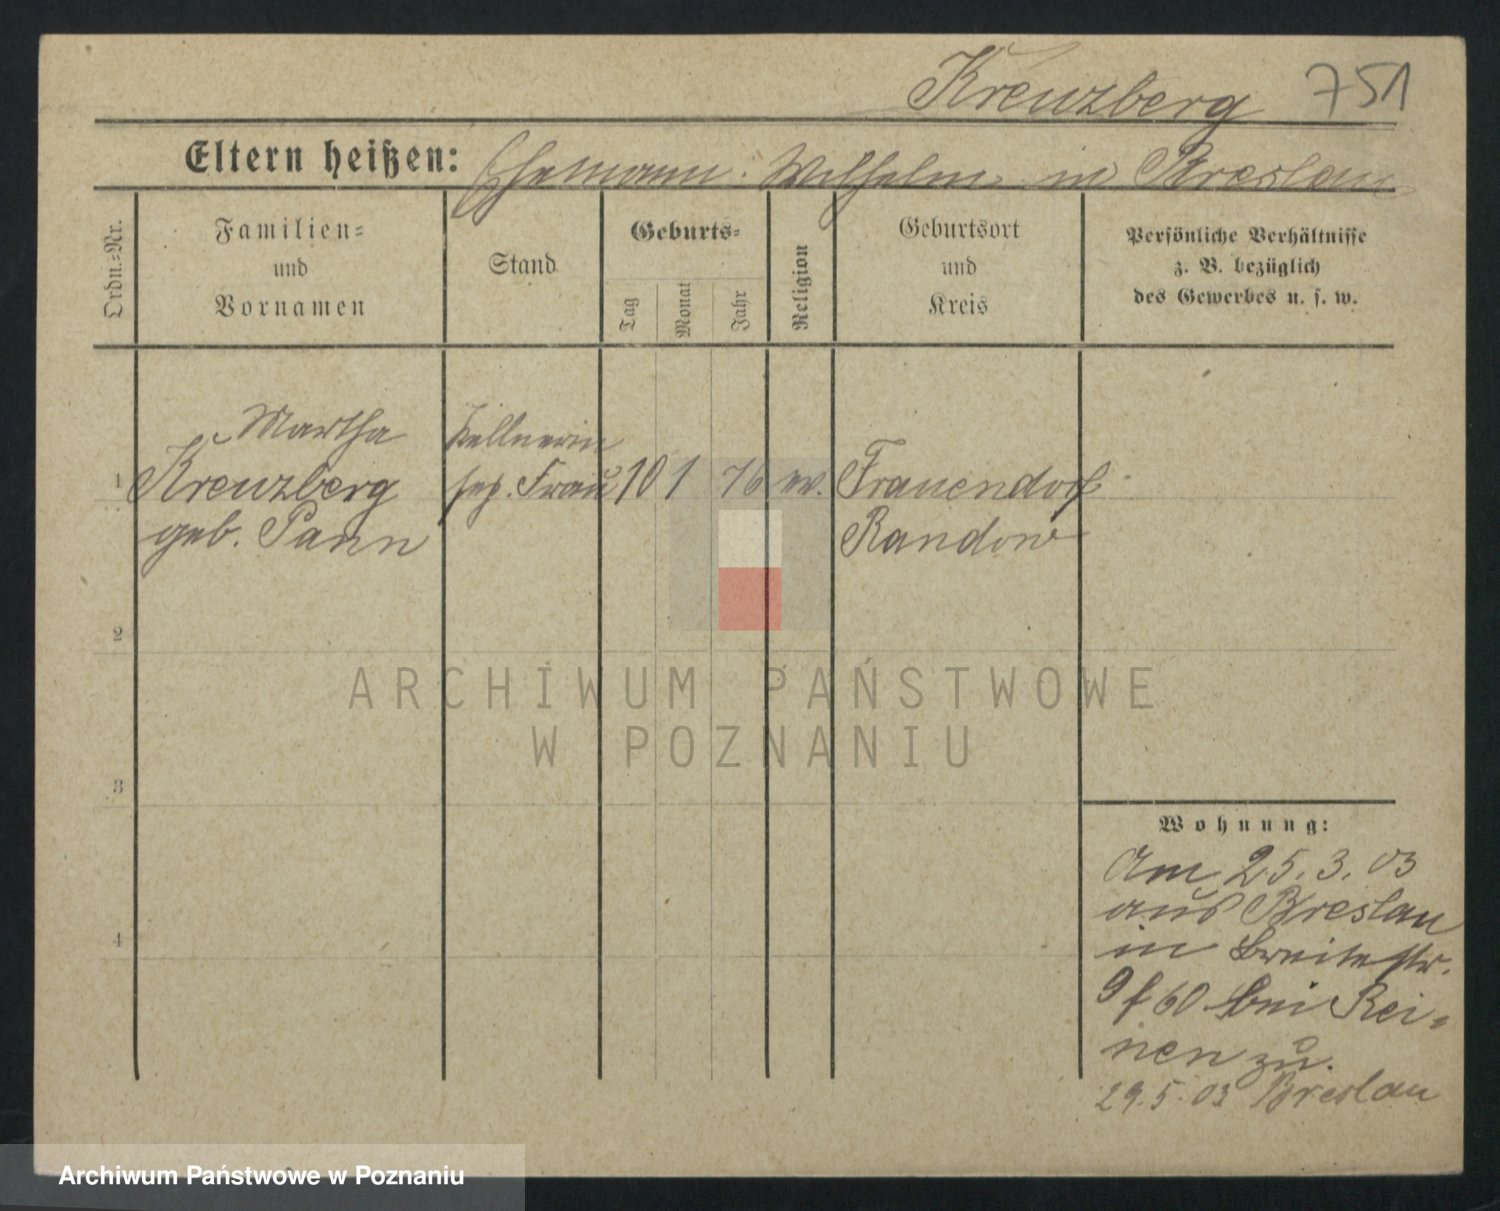 Kreuzberg 751
Eltern heißen: Ehemann: Wilhelm in Breslau
Ordn.-Nr.
Familien-
und
Vornamen
Stand
Geburts-
Tag
Monat
Jahr
Religion
Geburtsort
und
Kreis
Persönliche Verhältnisse
z. B. bezüglich
des Gewerbes u. s. w.
Martha Kellnerin
1 Kreuzberg sep. Frau 10 1 76 ev. Frauendorf
geb. Pann Randow
2
3
4
ARCHIWUM PAŃSTWOWE
W POZNANIU
Wohnung:
Am 25.3.03
aus Breslau
in Breitestr.
9 f 60 bei Rei-
nen zu.
29.5.03 Breslau
Archiwum Państwowe w Poznaniu